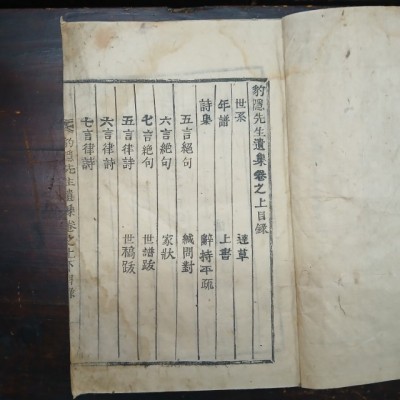 豹隱先生遺集卷之上目錄
世系 逑草
年譜 上書
詩集 辭持平疏
五言絕句 緘問對
六言絕句 家狀
七言絕句 世譜跋
五言律詩 世稿跋
六言律詩
七言律詩
豹隱先生遺集卷之上下目錄